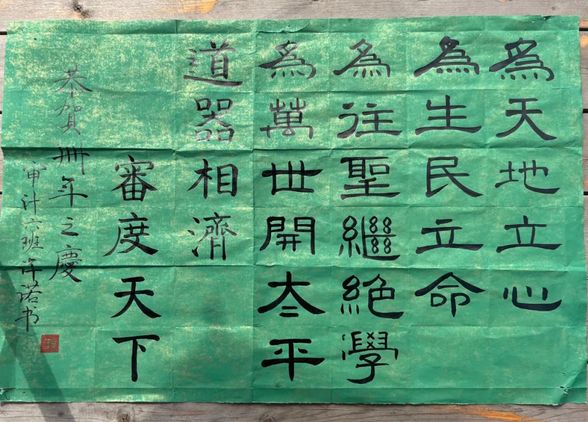 為天地立心
為生民立命
為往聖繼絕學
為萬世開太平
道器相濟
審度天下
恭賀卌年之慶
审计六班许诺书